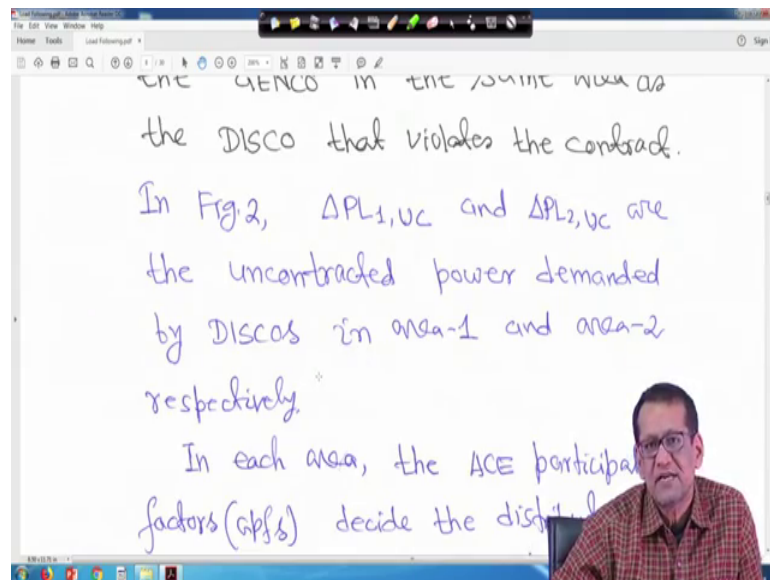 Load Following.pdf - Adobe Acrobat Reader DC
File Edit View Window Help
Home Tools Load Following.pdf × Sign
the GENCO in the same area as
the DISCO that violates the contract.
In Fig.2, ΔPL1,UC and ΔPL2,UC are
the uncontracted power demanded
by DISCOs in area-1 and area-2
respectively.
In each area, the ACE participa
factors (apfs) decide the